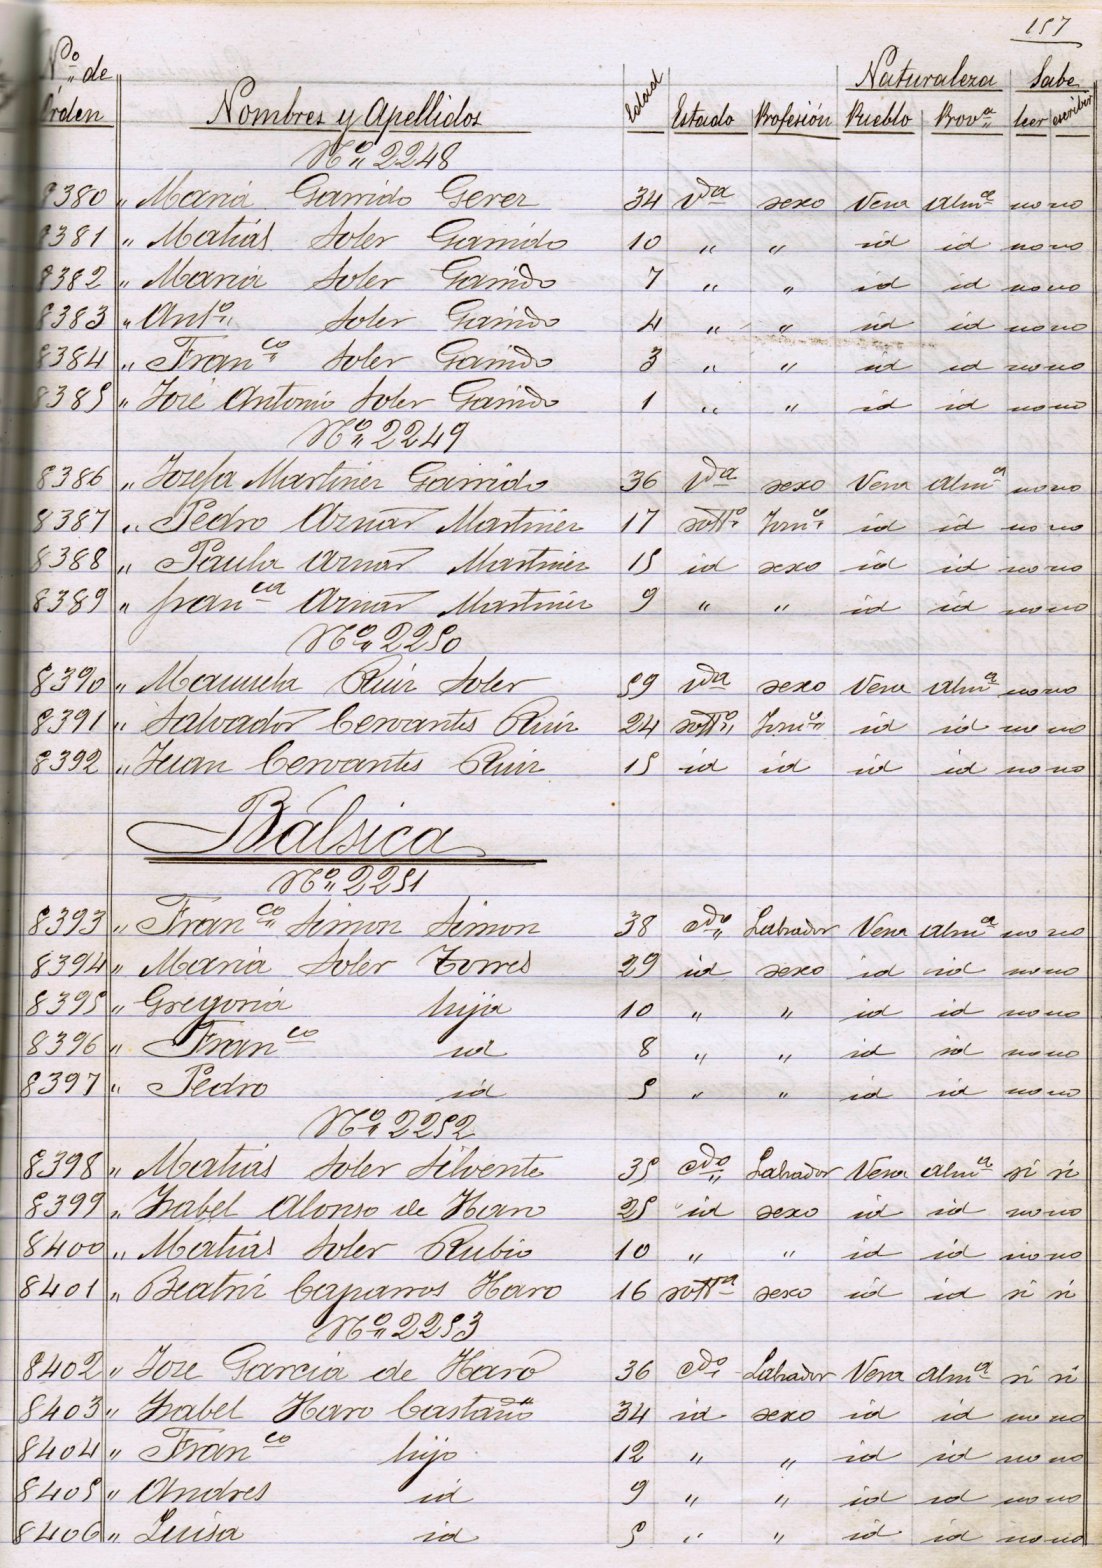 157
Nº de Orden Nombres y Apellidos Edad Estado Profesión Naturaleza Pueblo Prov.ª Sabe leer escribir
Nº 2248
8380 " Maria Garrido Gerez 34 Vda sexo Vera Alm.ª no no
8381 " Matias Soler Garrido 10 " " id id no no
8382 " Maria Soler Garrido 7 " " id id no no
8383 " Antº Soler Garrido 4 " " id id no no
8384 " Franco Soler Garrido 3 " " id id no no
8385 " José Antonio Soler Garrido 1 " " id id no no
Nº 2249
8386 " Josefa Martinez Garrido 36 Vda sexo Vera Alm.ª no no
8387 " Pedro Aznar Martinez 17 soltº Jornº id id no no
8388 " Paula Aznar Martinez 15 id sexo id id no no
8389 " Franca Aznar Martinez 9 " " id id no no
Nº 2250
8390 " Manuela Ruiz Soler 59 Vda sexo Vera Alm.ª no no
8391 " Salvador Cervantes Ruiz 24 soltº Jornº id id no no
8392 " Juan Cervantes Ruiz 15 id id id id no no
Bálsica
Nº 2251
8393 " Franco Simon Simon 38 cdo Labrador Vera Alm.ª no no
8394 " Maria Soler Torres 29 id sexo id id no no
8395 " Gregoria hija 10 " " id id no no
8396 " Franco id 8 " " id id no no
8397 " Pedro id 5 " " id id no no
Nº 2252
8398 " Matias Soler Silvente 35 cdo Labrador Vera Alm.ª si si
8399 " Isabel Alonso de Haro 25 id sexo id id no no
8400 " Matias Soler Rubio 10 " " id id no no
8401 " Beatriz Caparros Haro 16 soltª sexo id id si si
Nº 2253
8402 " Jose Garcia de Haro 36 cdo Labrador Vera Alm.ª si si
8403 " Isabel Haro Castaño 34 id sexo id id no no
8404 " Franco hijo 12 " " id id no no
8405 " Andres id 9 " " id id no no
8406 " Luisa id 5 " " id id no no